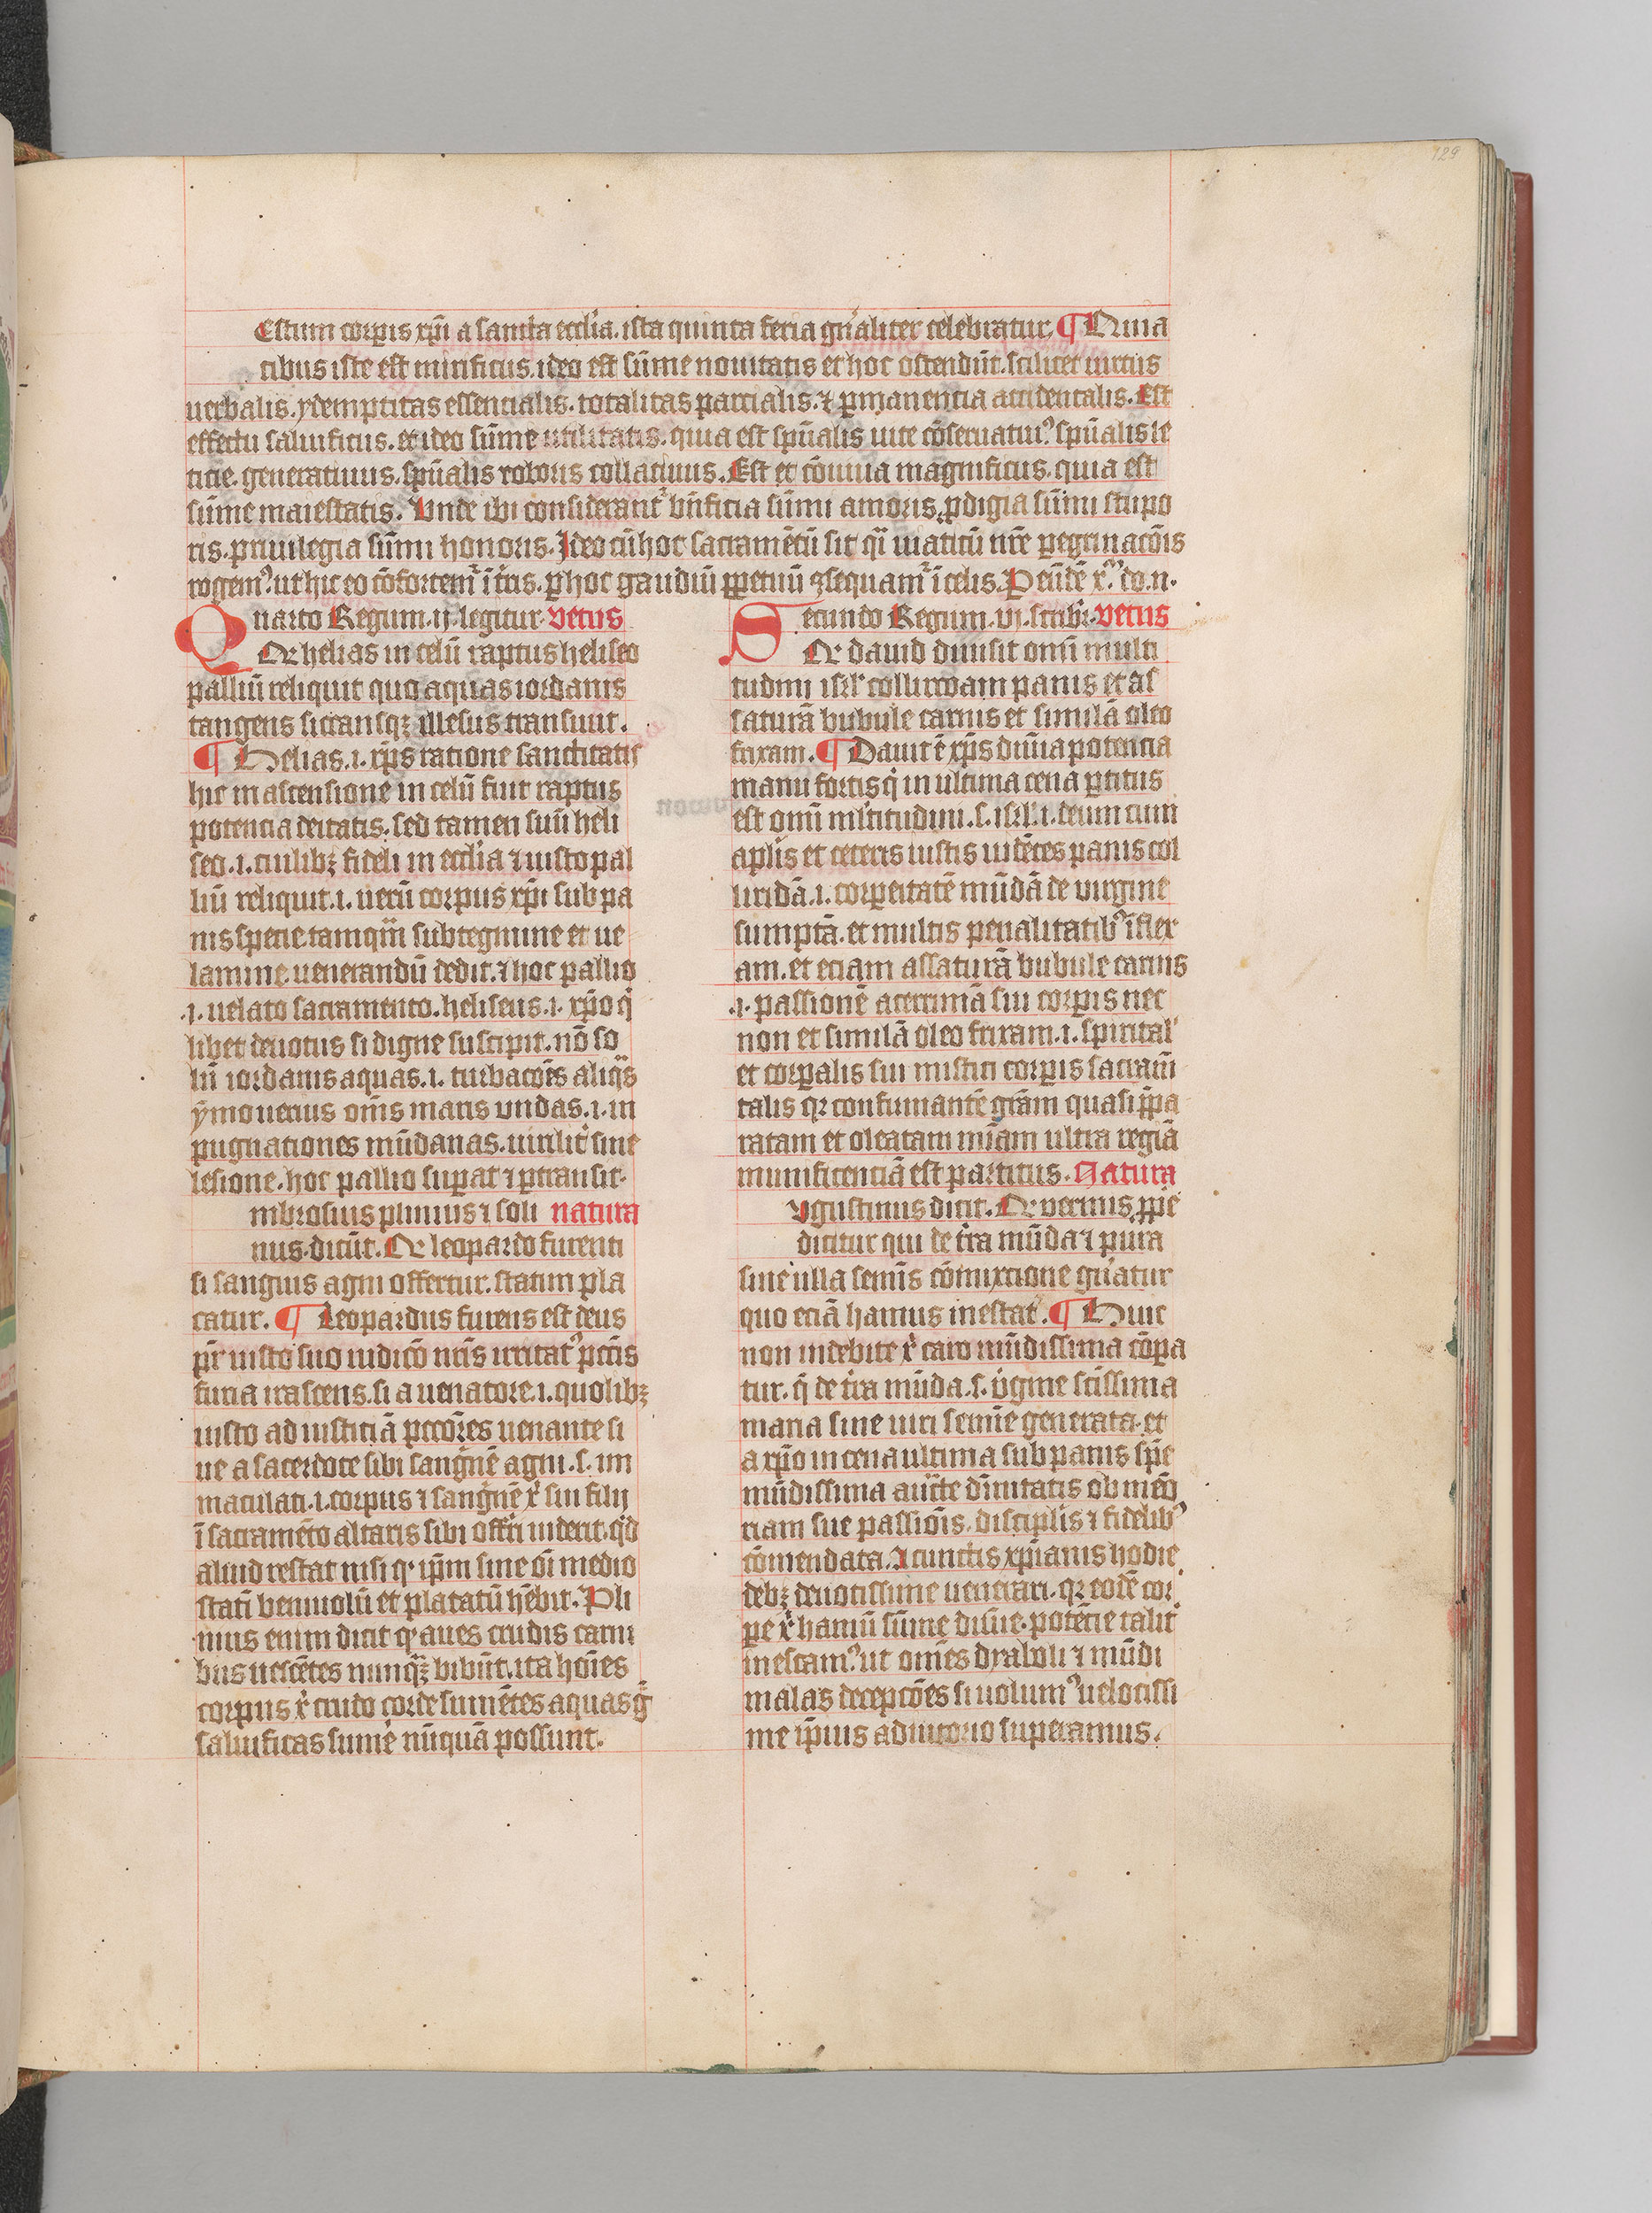 129
estum corꝑis xp̅i a sancta eccl̅ia. ista quinta feria gn̅aliter celebratur. ¶ Quia
cibus iste est mirificus. ideo est sūme nouitatis et hoc ostendūt. scilicet uirtus
uerbalis. ydemptitas essencialis. totalitas parcialis. ⁊ ꝑmanencia accidentalis. Est
effectu saluificus. et ideo sūme utilitatis. quia est spūalis uite cōseruatiuꝰ. spūalis le
ticie. generatiuus. spūalis roboris collatiuus. Est et cōuiuia magnificus. quia est
sūme maiestatis. Unde ibi considerant᷑ bn̅ficia sūmi amoris. ꝓdigia sūmi stupo
ris. priuilegia sūmi honoris. Ideo cū hoc sacramētū sit qͥ uiaticū nr̅e ꝑegrinacōis
rogemꝰ. ut hic eo cōfortem᷑ ī t̅ris. ꝑ hoc gaudiū ꝑpetuū ꝯsequam᷑ ī celis. P eūdē x̅ꝫ. do. n.
Quarto Regum. ij. legitur. vetus
Qꝛ helias in celū raptus heliseo
palliū reliquit quo aquas iordanis
tangens siccansqꝫ illesus transiuit.
¶ Helias. i. xp̅s ratione sanctitatis
hic in ascensione in celū fuit raptus
potencia deitatis. sed tamen suū heli
seo. i. cuilibꝫ fideli in eccl̅ia ⁊ iusto pal
liū reliquit. i. uerū corpus xp̅i sub pa
nis specie tamqm̅ subtegmine et ue
lamine uenerandū dedit. ⁊ hoc pallio
.i. uelato sacramento. heliseus. i. xp̅o qͥ
libet deuotus si digne suscipit. nō so
lū iordanis aquas. i. turbacōēs aliqͣs
ymo uerius om̅s maris undas. i. in
pugnationes mūdanas. uirilit᷑ sine
lesione. hoc pallio suꝑat ⁊ ꝑtransit.
mbrosius plinius ⁊ soli natura
nus. dicūt. Qꝛ leopardo furenti
si sanguis agni offertur. statim pla
catur. ¶ Leopardus furens est deus
pr̅ iusto suo iudicō nr̅is irritatꝰ pccīs
furia irascens. si a uenatore. i. quolibꝫ
iusto ad iusticiā pccōres uenante si
ue a sacerdote sibi sangnē agni. s. im
maculati. i. corpus ⁊ sangnē xͥ sui filij
ī sacramēto altaris sibi offri uiderit. qͥd
aliud restat nisi qꝛ ip̅m sine oī medio
statī beniuolū et placatū hēbit. Pli
nius enim dicit qꝛ aues crudis carni
bus uescētes nunqͣꝫ bibūt. ita hoīes
corpus xͥ crudo corde sumētes aquas gͬ
saluificas sumē nūquā possunt.
Secundo Regum. vj. scribr̅. vetus
Qꝛ dauid diuisit omī multi
tudini isrl̅ collirĩdam panis et as
saturā bubule carnis et similā oleo
frixam. ¶ Dauit ē xp̅s diuīa potencia
manu fortis qͥ in ultima cena ꝑtitus
est omī ml̅titudini. s. isrl̅. i. deum cum
apl̅is et ceteris iustis uidētes panis col
liridā. i. corꝑeitatē mūdā de uirgine
sumptā. et multis penalitatibꝰ īflex
am. et eciam assaturā bubule carnis
.i. passionē acerrimā sui corꝑis nec
non et similā oleo frixam. i. spirital᷑
et corꝑalis sui mistici corꝑis sacram̅
talis qꝛ confumantē grām quasi ꝓpa
ratam et oleatam mīam ultra regiā
munificenciā est partitus. Natura
ugustinus dicit. Qꝛ vermis ꝓpie
dicitur qui de t̅ra mūda ⁊ pura
sine ulla semīs cōmixcione gn̅atur
quo eciā hamus inescat᷑. ¶ Huic
non indebite xͥ caro mūdissima cōꝑa
tur. q̅ de t̅ra mūda. s. v̅gine scīssima
maria sine uiri semīe generata. et
a xp̅o in cena ultima sub panis spē
mūdissima auctͤ diuinitatis ob memō
riam sue passiōis. discipl̅is ⁊ fidelibꝰ
cōmendata. A cunctis xp̅ianis hodie
debꝫ deuotissime uenerari. qꝛ eodē cor
ꝑe xͥ hamū sūme diuīe. potēcie talit᷑
inescamꝰ. ut om̅es dyaboli ⁊ mūdi
malas decepcōes si uolumꝰ uelocissi
me ip̅ius adiutorio superamus.